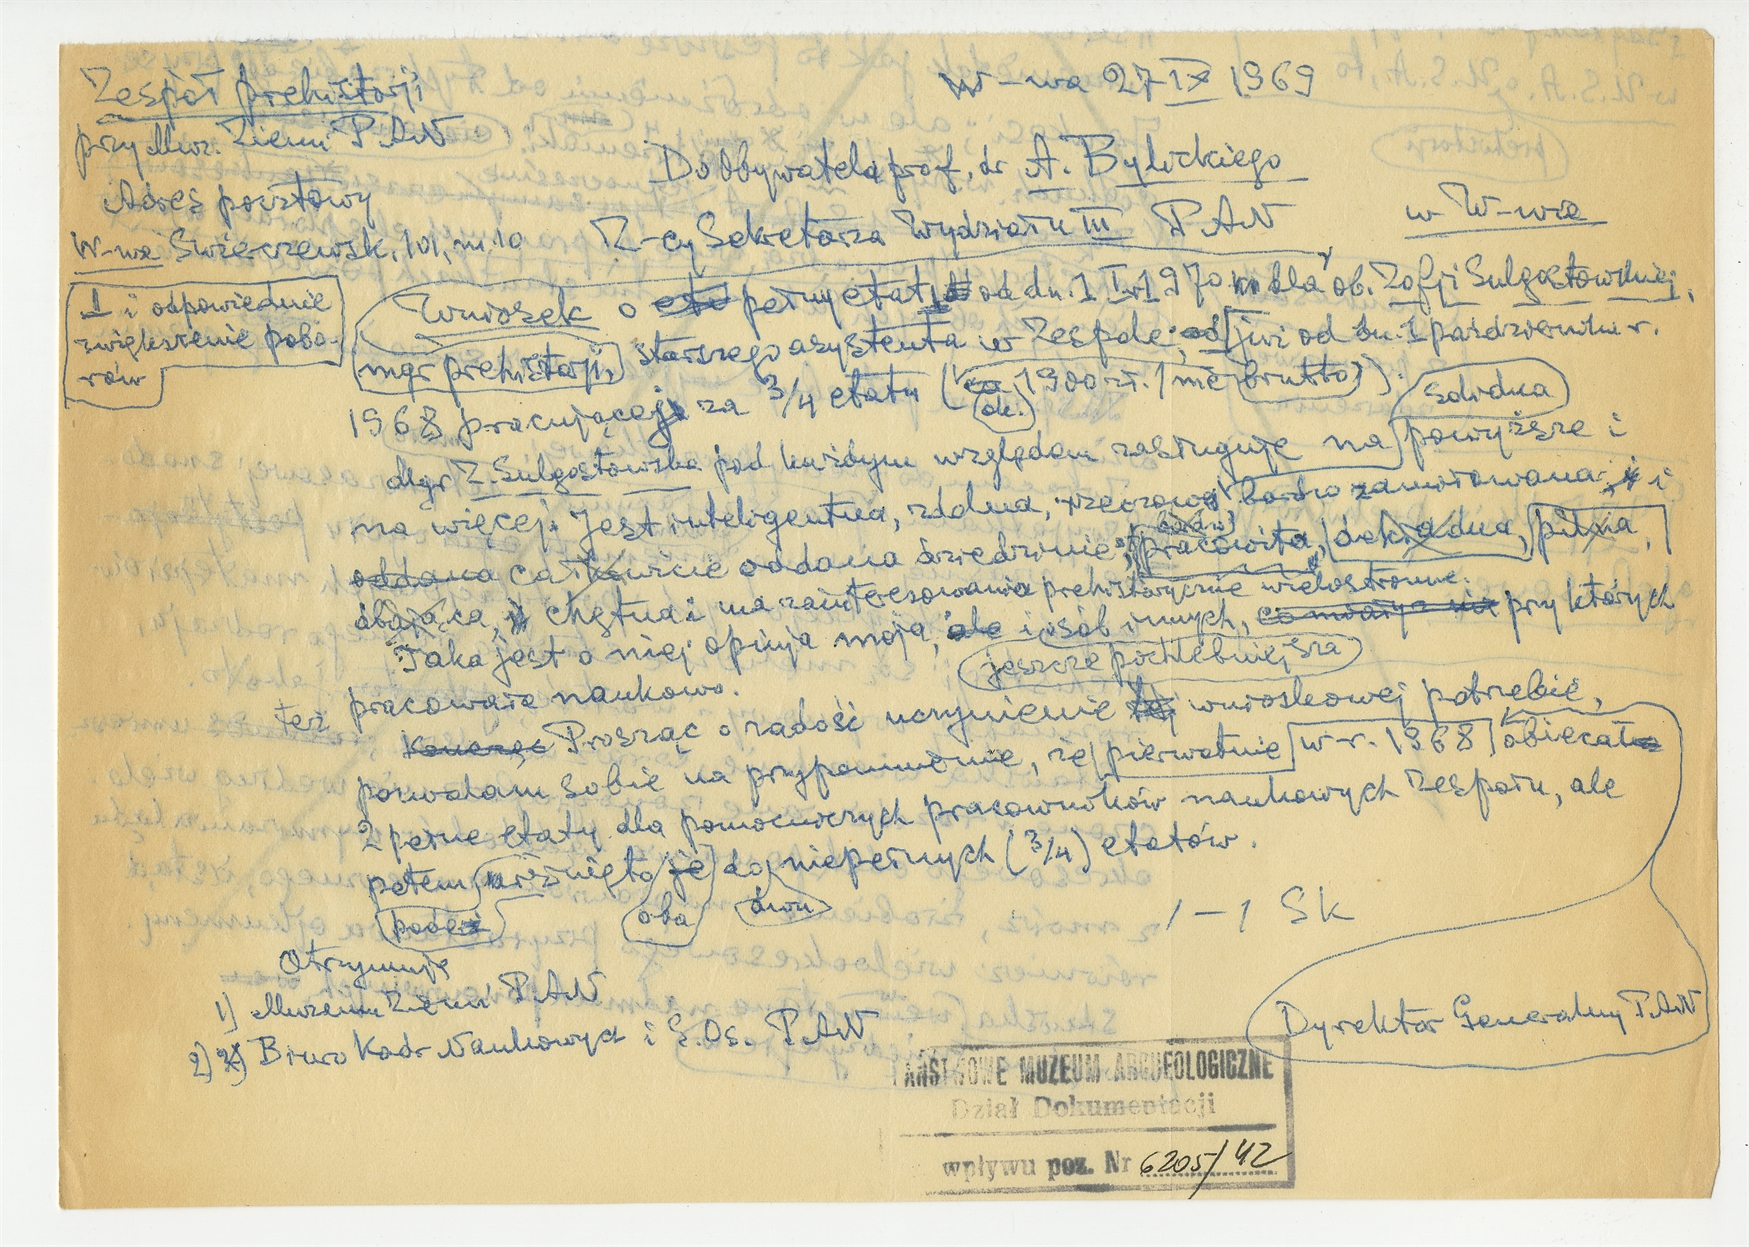 Zespół prehistorji
W-wa 27 IX 1969
przy Muz. Ziemi PAN
Do Obywatela prof. dr A. Bylickiego
Adres pocztowy
Z-cy Sekretarza Wydziału III PAN w W-wie
W-wa Świerczewsk. 101, m. 10
1 i odpowiednie
zwiększenie pobo-
rów
Wniosek o pełny etat od dn. 1 I 1970 dla ob. Zofji Sulgostowskiej,
mgr prehistorji, starszego asystenta w Zespole, już od dn. 1 października r.
1968 pracującej za 3/4 etatu (ok. 1900 zł. / mc brutto).
solidna
Mgr Z. Sulgostowska pod każdym względem zasługuje na powyższe i
na więcej. Jest inteligentna, zdolna, rzeczowa, bardzo zamiłowana i
oddana całkowicie oddana dziedzinie, pracowita, dokładna, pilna,
chętna i ma zainteresowania prehistorycznie wielostronne.
Taka jest o niej opinja moja, i osób innych, przy których
jeszcze pochlebniejsza
też pracowała naukowo.
Prosząc o zadość uczynienie wnioskowej potrzebie,
pozwalam sobie na przypomnienie, że pierwotnie w r. 1968 obiecał
2 pełne etaty dla pomocniczych pracowników naukowych Zespołu, ale
potem je do niepełnych (3/4) etatów.
oba dwu
/-/ SK
Otrzymuje
1) Muzeum Ziemi PAN
Dyrektor Generalny PAN
2) Biuro Kadr Naukowych i S. Os. PAN
PAŃSTWOWE MUZEUM ARCHEOLOGICZNE
Dział Dokumentacji
wpływu poz. Nr 6205/42